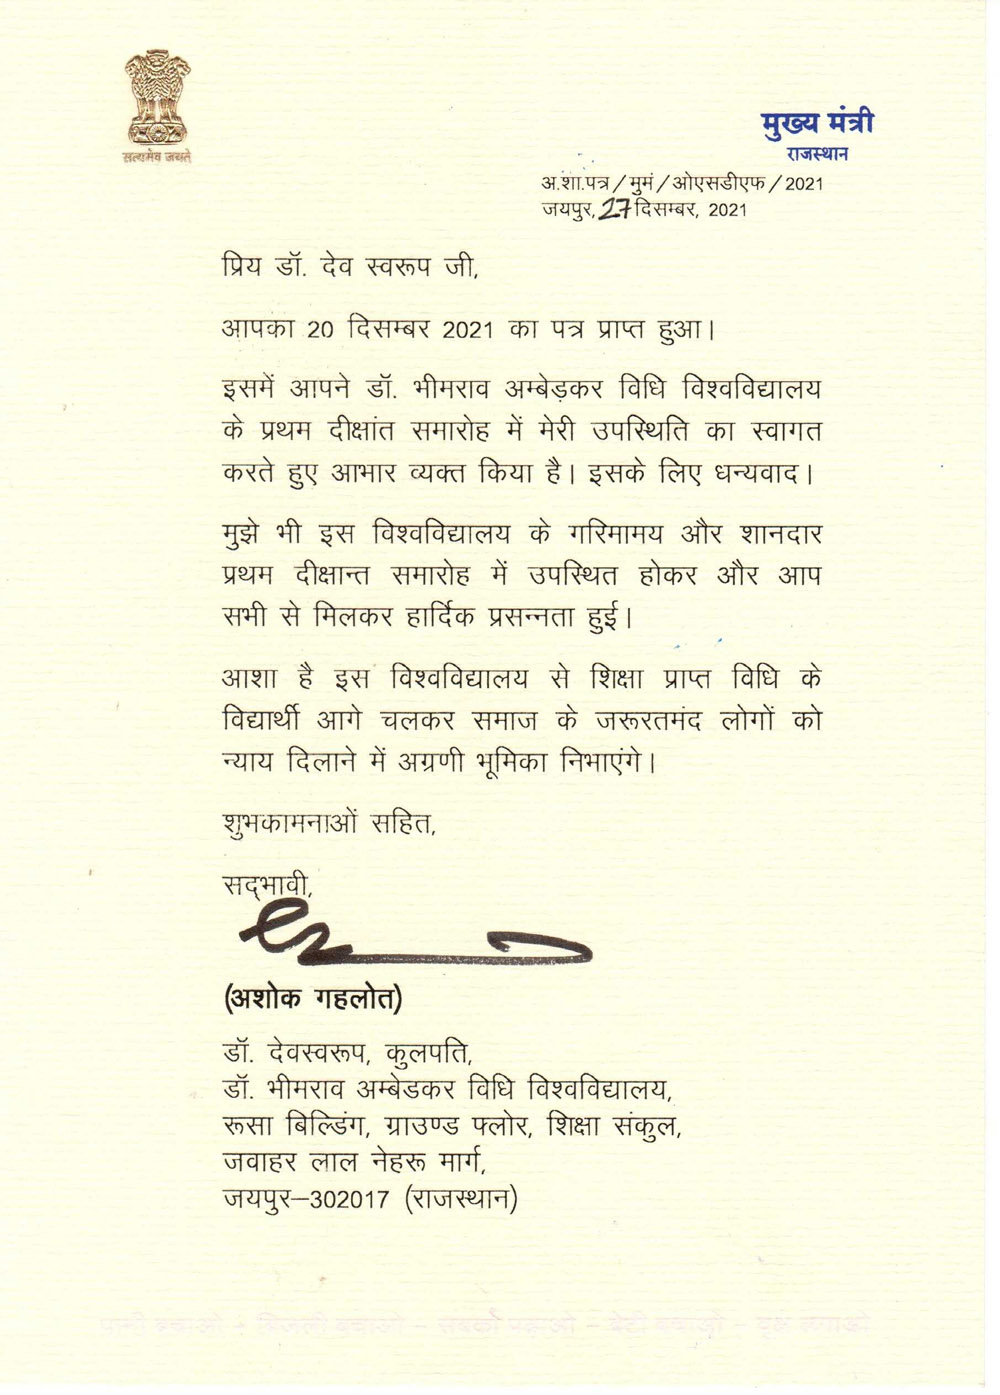 सत्यमेव जयते
मुख्य मंत्री
राजस्थान
अ.शा.पत्र/मुमं/ओएसडीएफ/2021
जयपुर, 27 दिसम्बर, 2021
प्रिय डॉ. देव स्वरूप जी,
आपका 20 दिसम्बर 2021 का पत्र प्राप्त हुआ।
इसमें आपने डॉ. भीमराव अम्बेड़कर विधि विश्वविद्यालय
के प्रथम दीक्षांत समारोह में मेरी उपस्थिति का स्वागत
करते हुए आभार व्यक्त किया है। इसके लिए धन्यवाद।
मुझे भी इस विश्वविद्यालय के गरिमामय और शानदार
प्रथम दीक्षान्त समारोह में उपस्थित होकर और आप
सभी से मिलकर हार्दिक प्रसन्नता हुई।
आशा है इस विश्वविद्यालय से शिक्षा प्राप्त विधि के
विद्यार्थी आगे चलकर समाज के जरूरतमंद लोगों को
न्याय दिलाने में अग्रणी भूमिका निभाएंगे।
शुभकामनाओं सहित,
सद्भावी,
(अशोक गहलोत)
डॉ. देवस्वरूप, कुलपति,
डॉ. भीमराव अम्बेडकर विधि विश्वविद्यालय,
रूसा बिल्डिंग, ग्राउण्ड फ्लोर, शिक्षा संकुल,
जवाहर लाल नेहरू मार्ग,
जयपुर–302017 (राजस्थान)
पानी बचाओ – बिजली बचाओ – सबको पढ़ाओ – बेटी बचाओ – वृक्ष लगाओ